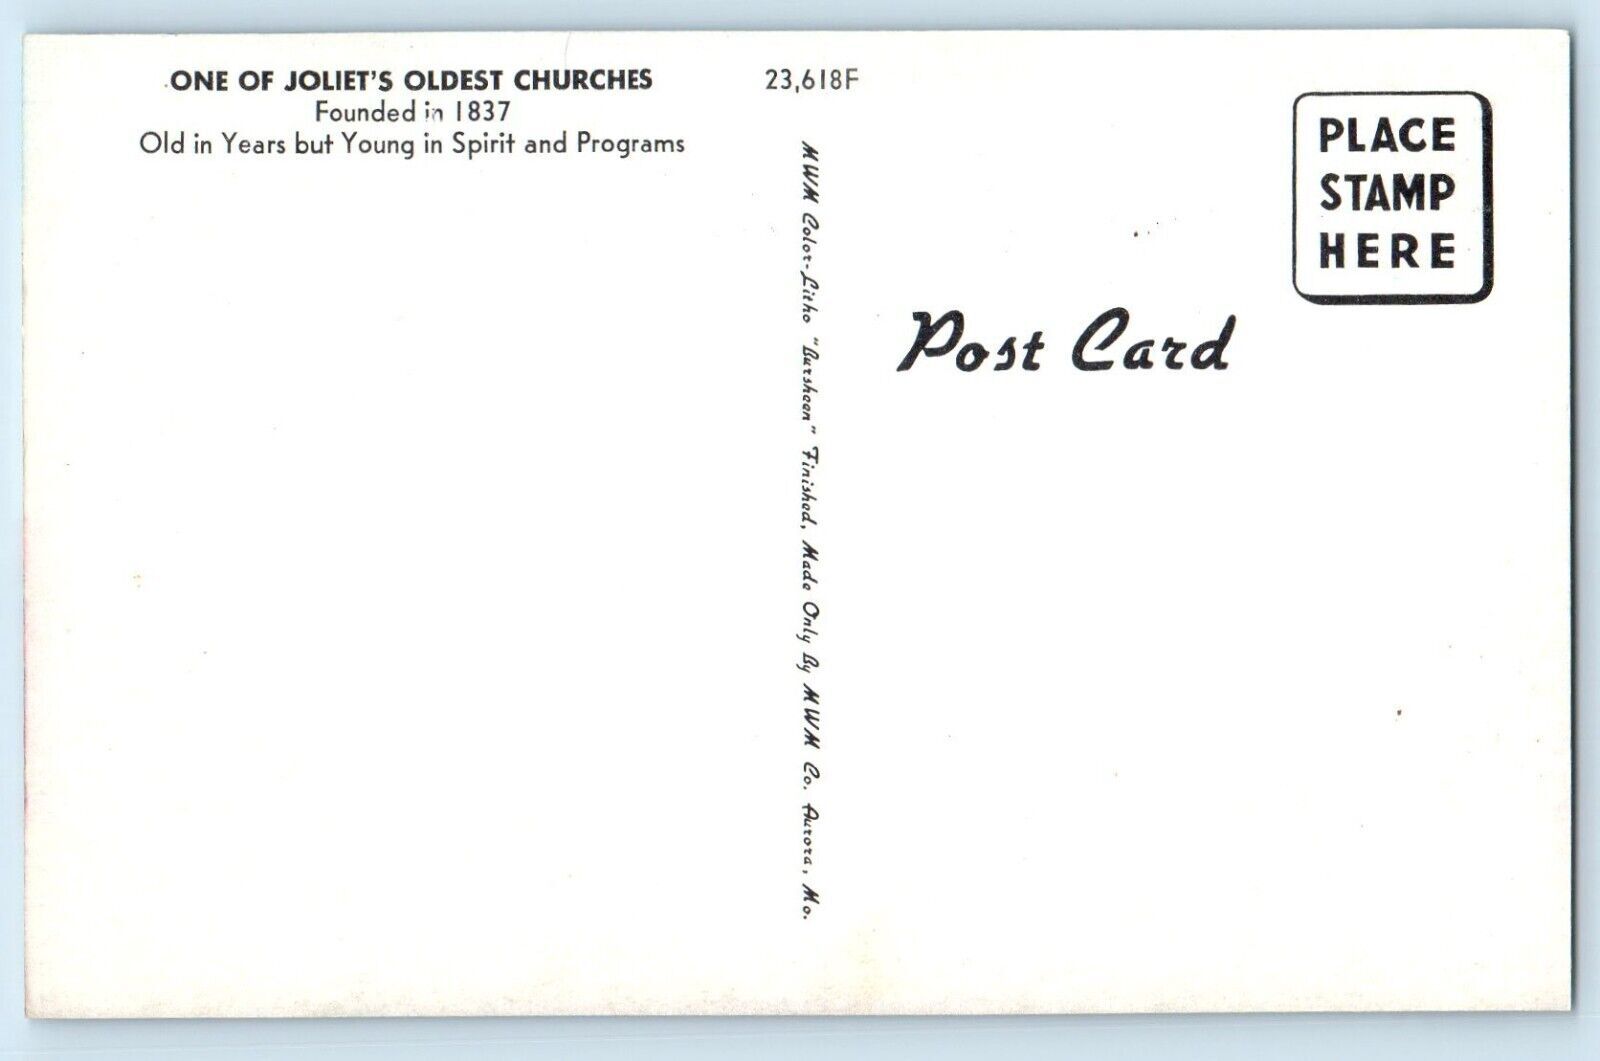 ONE OF JOLIET'S OLDEST CHURCHES
Founded in 1837
Old in Years but Young in Spirit and Programs
23,618F
MWM Color-Litho "Bursheen" Finished, Made Only By MWM Co. Aurora, Mo.
Post Card
PLACE
STAMP
HERE